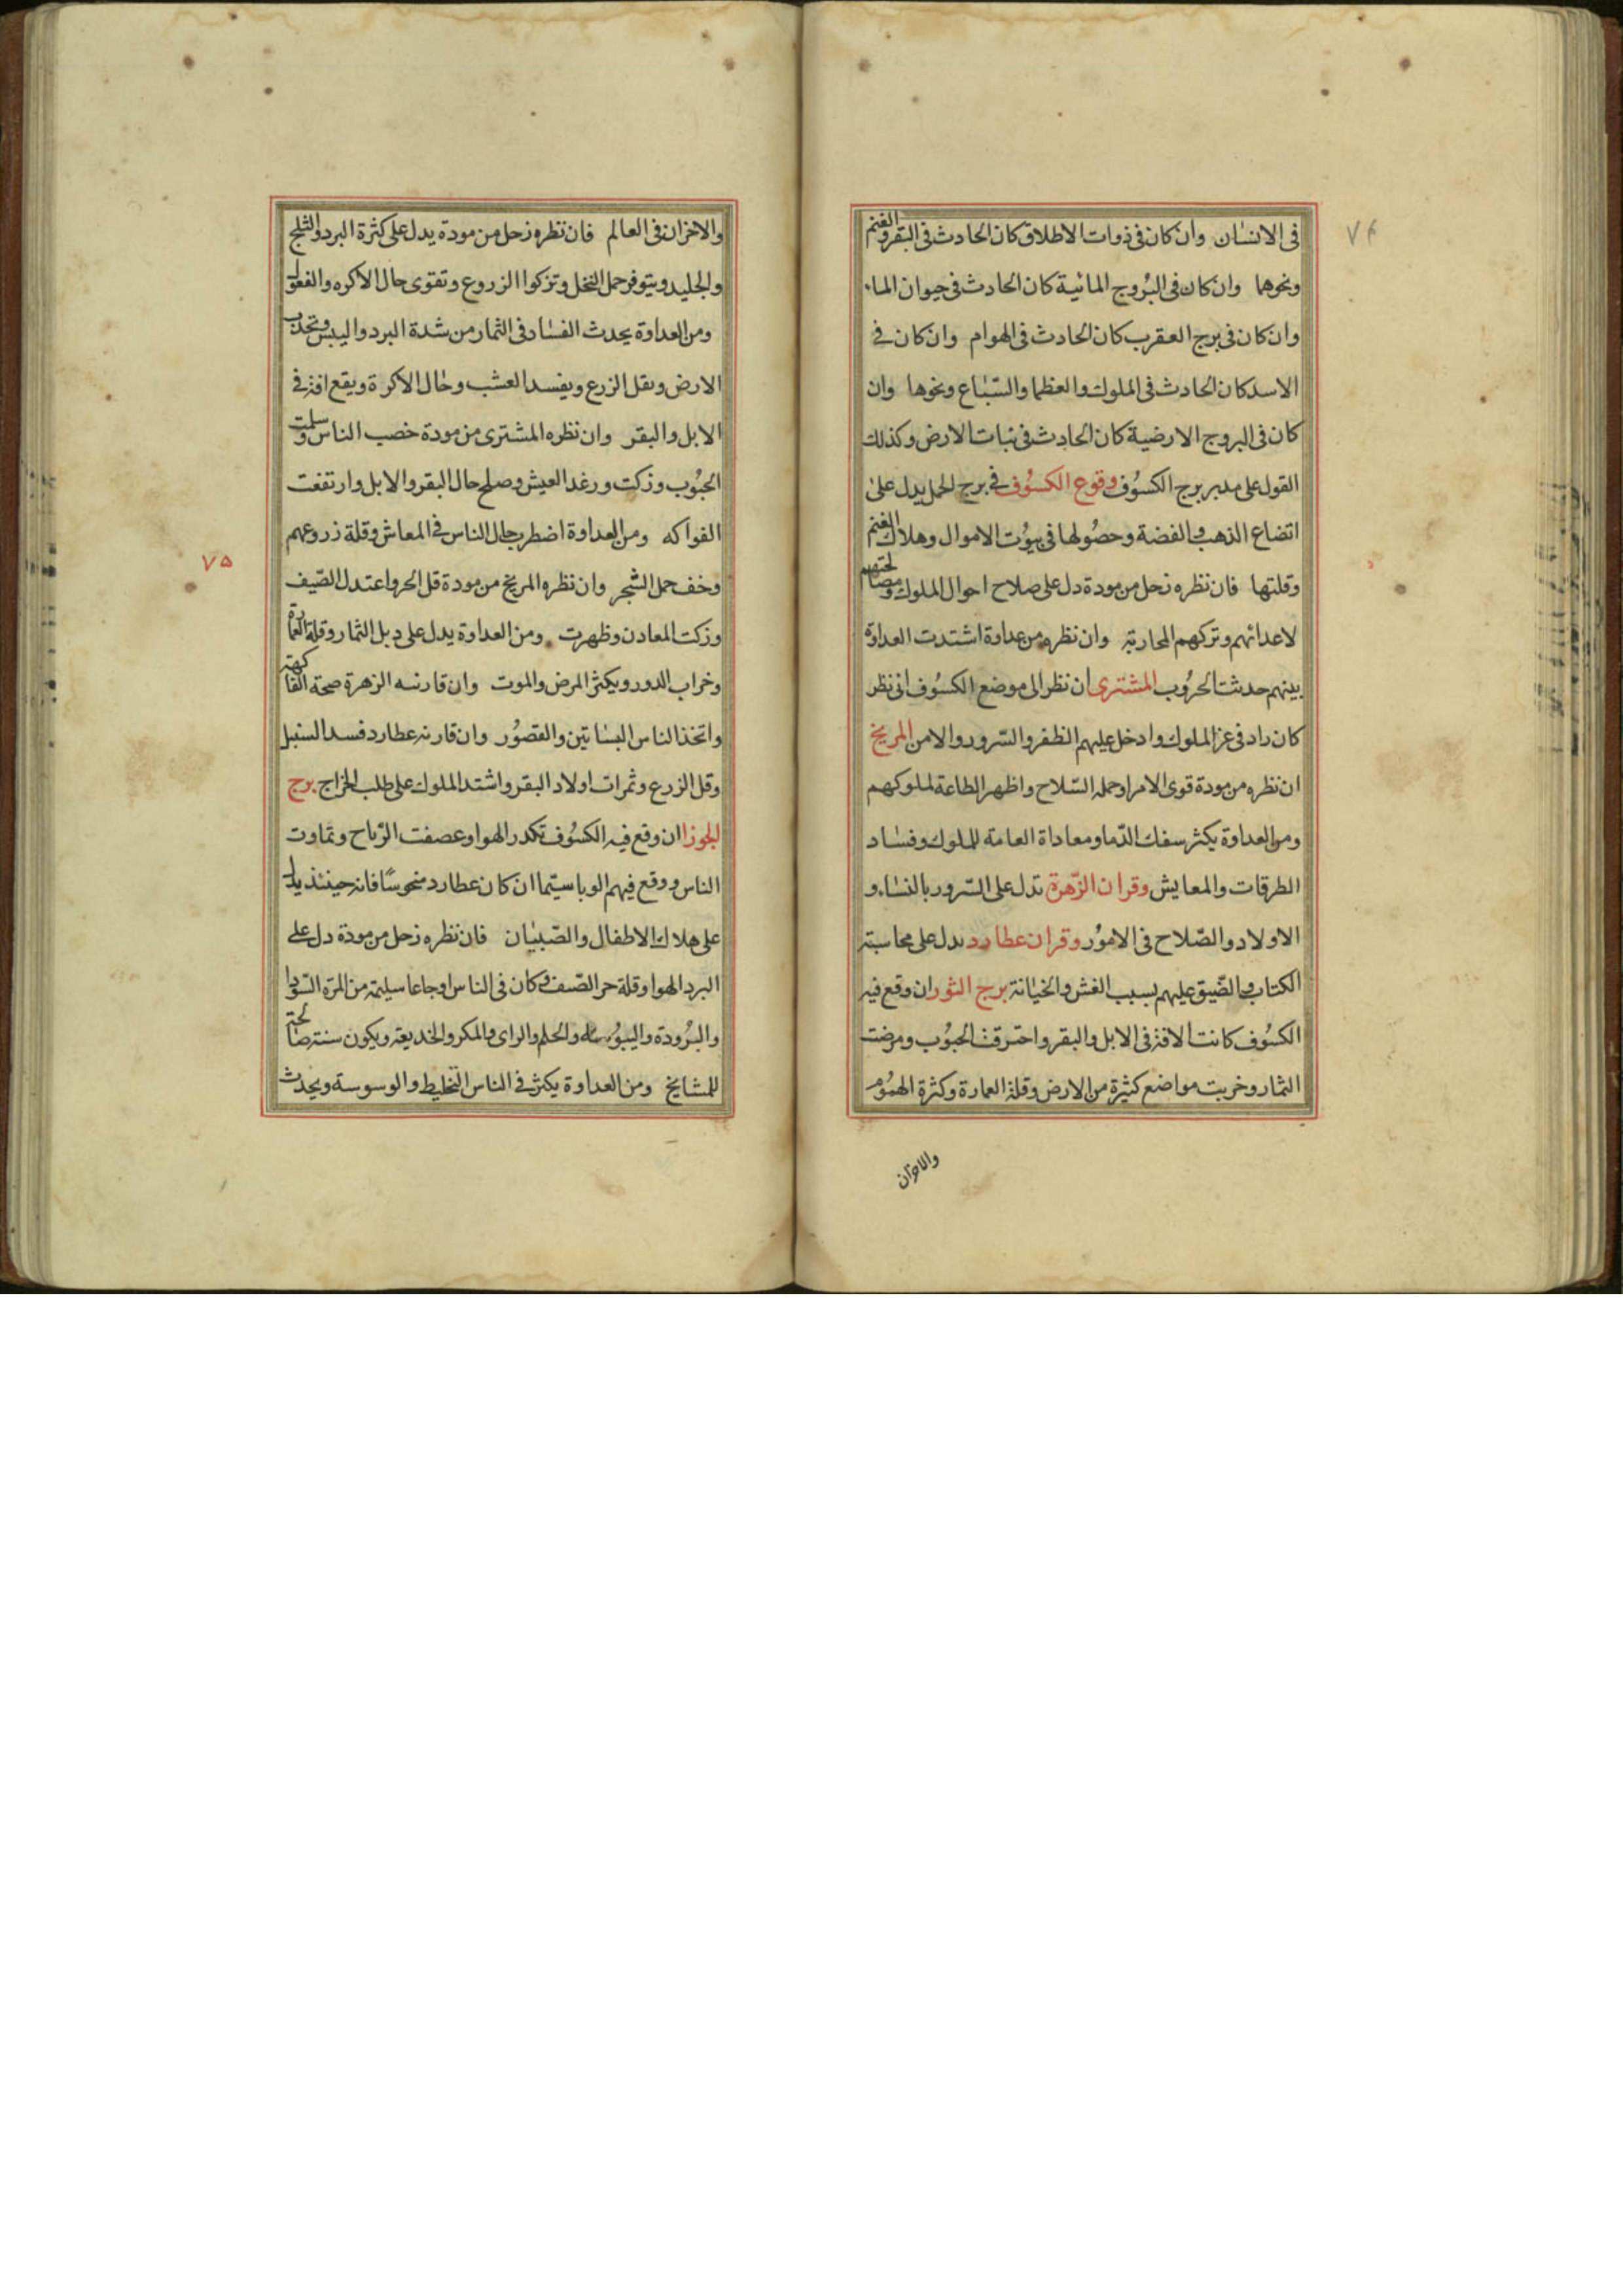 ٧٤
فى الانسان وان كان فى ذوات الاظلاف كان الحادث فى البقر والغنم
ونحوهما وان كان فى البروج المائية كان الحادث فى حيوان الماء
وان كان فى برج العقرب كان الحادث فى الهوام وان كان فى
الاسد كان الحادث فى الملوك والعظما والسّباع ونحوها وان
كان فى البروج الارضية كان الحادث فى نبات الارض وكذلك
القول على مدبر برج الكسوف وقوع الكسوف فى برج الحمل يدل على
اتضاع الذهب والفضة وحصولها فى بيوت الاموال وهلاك الغنم
وقلتها فان نظره زحل من مودة دل على صلاح احوال الملوك ومصالحتهم
لاعدائهم وتركهم المحاربة وان نظره من عداوة اشتدت العداوة
بينهم حدثت الحروب المشترى ان نظر الى موضع الكسوف انى نظر
كان زاد فى عز الملوك وادخل عليهم الظفر والسّرور والامن المريخ
ان نظره من مودة قوى الامر وحمله السّلاح واظهر الطاعة لملوكهم
ومن العداوة يكثر سفك الدّما ومعاداة العامة للملوك وفساد
الطرقات والمعايش وقران الزّهرة تدل على السّرور بالنساء و
الاولاد والصّلاح فى الامور وقران عطارد يدل على محاسبة
الكتاب والضّيق عليهم بسبب الغش والخيانة برج الثور ان وقع فيه
الكسوف كانت الافة فى الابل والبقر واحترقت الحبوب ومرضت
الثمار وخربت مواضع كثيرة من الارض وقلة العمارة وكثرة الهموم
والاحزان
والاحزان فى العالم فان نظره زحل من مودة يدل على كثرة البرد والثلج
والجليد ويتوفر حمل النخل وتزكوا الزروع وتقوى حال الاكره
ومن العداوة يحدث الفساد فى الثمار من شدة البرد واليبس وتجدب
الارض ويقل الزرع ويفسد العشب وحال الاكرة ويقع افة فى
الابل والبقر وان نظره المشترى من مودة خصب الناس وسلمت
الحبوب وزكت ورغد العيش وصلح حال البقر والابل وارتفعت
الفواكه ومن العداوة اضطرب حال الناس فى المعاش وقلة زروعهم
وخف حمل الشّجر وان نظره المريخ من مودة قل الحر واعتدل الصّيف
٧٥
وزكت المعادن وظهرت ومن العداوة يدل على دبل الثمار وقلة العمارة
وخراب الدور ويكثر المرض والموت وان قارنه الزهرة صحة الفاكهة
واتخذ الناس البساتين والقصور وان قارنه عطارد فسد السنبل
وقل الزرع وثمرات اولاد البقر واشتد الملوك على طلب الخراج برج
الجوزا ان وقع فيه الكسوف تكدر الهوا وعصفت الرّياح وتماوت
الناس ووقع فيهم الوبا سيّما ان كان عطارد منحوسًا فانه حينئذ يدل
على هلاك الاطفال والصّبيان فان نظره زحل من مودة دل على
البرد الهوا وقلة حر الصّيف وكان فى الناس اوجاعا سليمة من المرة السّودا
والبرودة واليبوسه والحلم والراى والمكر والخديعة ويكون سنة صالحة
للمشايخ ومن العداوة يكثر فى الناس التخليط والوسوسة ويحدث